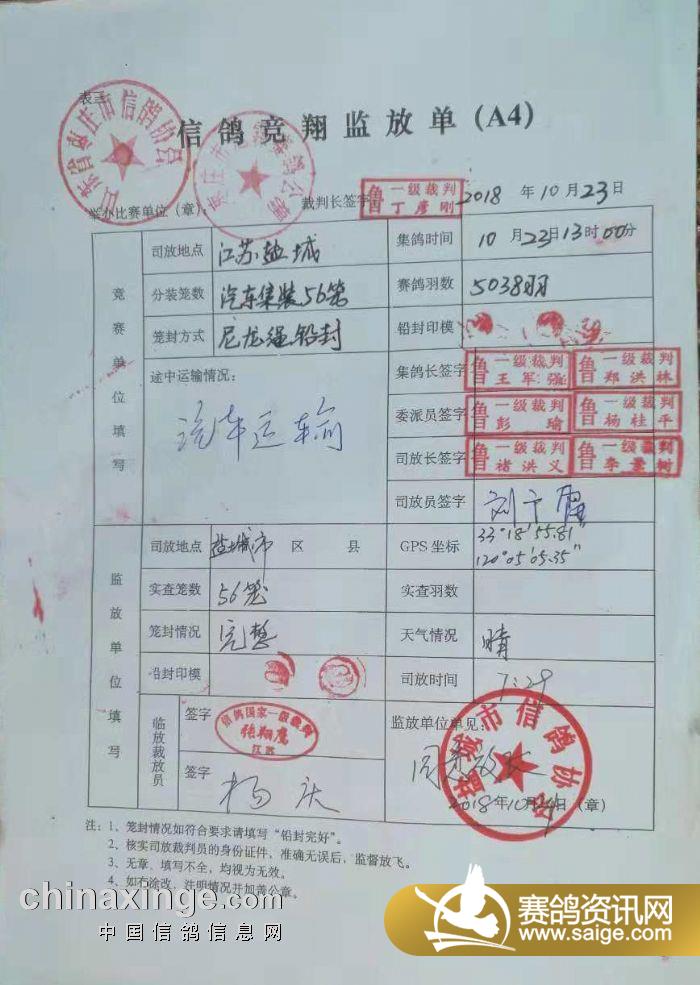 表三
山东省枣庄市信鸽协会
信鸽竞翔监放单（A4）
举办比赛单位（章）：
裁判长签字：
鲁 一级裁判 丁彦刚
2018 年 10 月 23 日
竞赛单位填写
司放地点 江苏盐城 集鸽时间 10 月 23 日 13 时 00 分
分装笼数 汽车集装56笼 赛鸽羽数 5038羽
笼封方式 尼龙绳铅封 铅封印模
途中运输情况：
汽车运输
集鸽长签字 鲁 一级裁判 王军强 鲁 一级裁判 郑洪林
委派员签字 鲁 一级裁判 彭瑜 鲁 一级裁判 杨桂平
司放长签字 鲁 一级裁判 褚洪义 鲁 一级裁判
司放员签字
监放单位填写
司放地点 盐城市 区 县 GPS坐标 33°18′55.81″
120°05′05.35″
实查笼数 56笼 实查羽数
笼封情况 完整 天气情况 晴
铅封印模 司放时间 7:29
临放裁放员
签字 信鸽国家一级裁判 张翔鹰 江苏
签字 杨庆
监放单位单见：
盐城市信鸽协会
同意放飞
2018年10月24日（章）
注：1、笼封情况如符合要求请填写“铅封完好”。
2、核实司放裁判员的身份证件，准确无误后，监督放飞。
3、无章、填写不全，均视为无效。
4、如有涂改，注明情况并加善公章。
chinaxinge.com
中国信鸽信息网
赛鸽资讯网
www.saige.com